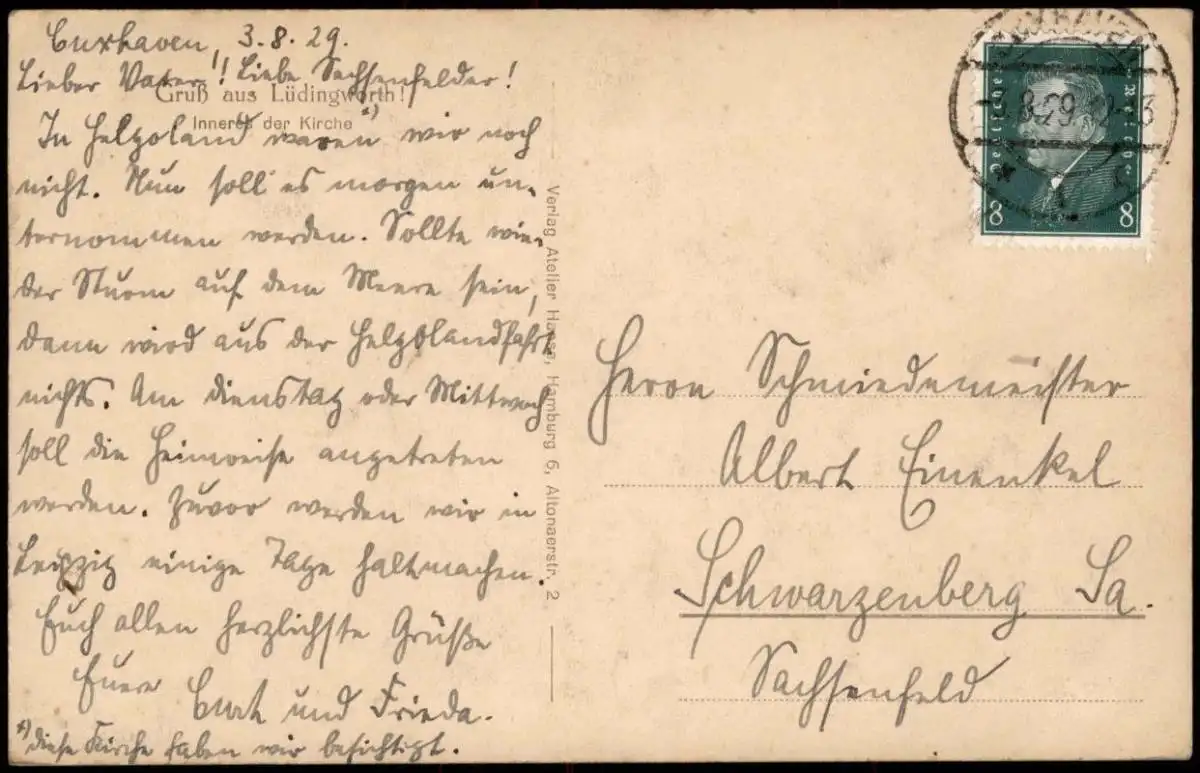 Cuxhaven, 3.8.29.
Lieber Vater! Liebe Sachsenfelder!
Gruß aus Lüdingworth!
Inneres der Kirche x)
In Helgoland waren wir noch
nicht. Nun soll es morgen un-
ternommen werden. Sollte wie-
der Sturm auf dem Meere sein,
dann wird aus der Helgolandfahrt
nichts. Am Dienstag oder Mittwoch
soll die Heimreise angetreten
werden. Zuvor werden wir in
Leipzig einige Tage haltmachen.
Euch allen herzlichste Grüße
Euere
Curt und Frieda.
x) diese Kirche haben wir besichtigt.
Verlag Atelier Hansa, Hamburg 6, Altonaerstr. 2
CUXHAVEN
8.29.12-3
Deutsches Reich
8 8
Herrn Schmiedemeister
Albert Einenkel
Schwarzenberg Sa.
Sachsenfeld